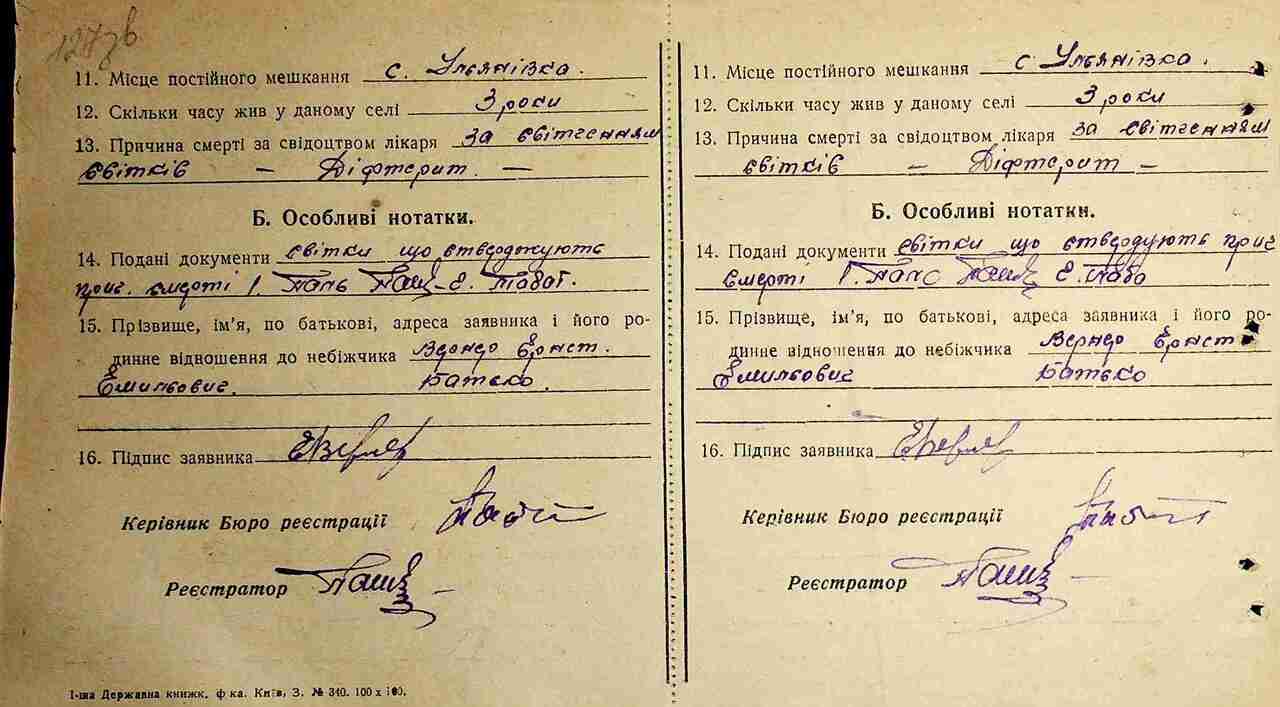 127зв
11. Місце постійного мешкання с. Ульянівка.
12. Скільки часу жив у даному селі 3 роки
13. Причина смерті за свідоцтвом лікаря за світченням
світків — Діфтерит. —
Б. Особливі нотатки.
14. Подані документи світки що стверджують
прич. смерті
15. Прізвище, ім’я, по батькові, адреса заявника і його ро-
динне відношення до небіжчика Ернст.
Емильович. Батько.
16. Підпис заявника
Керівник Бюро реєстрації
Реєстратор
1-ша Державна книжк. ф-ка. Київ, З. № 340. 100 х 100.
11. Місце постійного мешкання с Ульянівка.
12. Скільки часу жив у даному селі 3 роки
13. Причина смерті за свідоцтвом лікаря за світченням
світків — Діфтерит —
Б. Особливі нотатки.
14. Подані документи світки що ствердують прич
смерті
15. Прізвище, ім’я, по батькові, адреса заявника і його ро-
динне відношення до небіжчика Вернер Ернст
Емильович Батько
16. Підпис заявника
Керівник Бюро реєстрації
Реєстратор